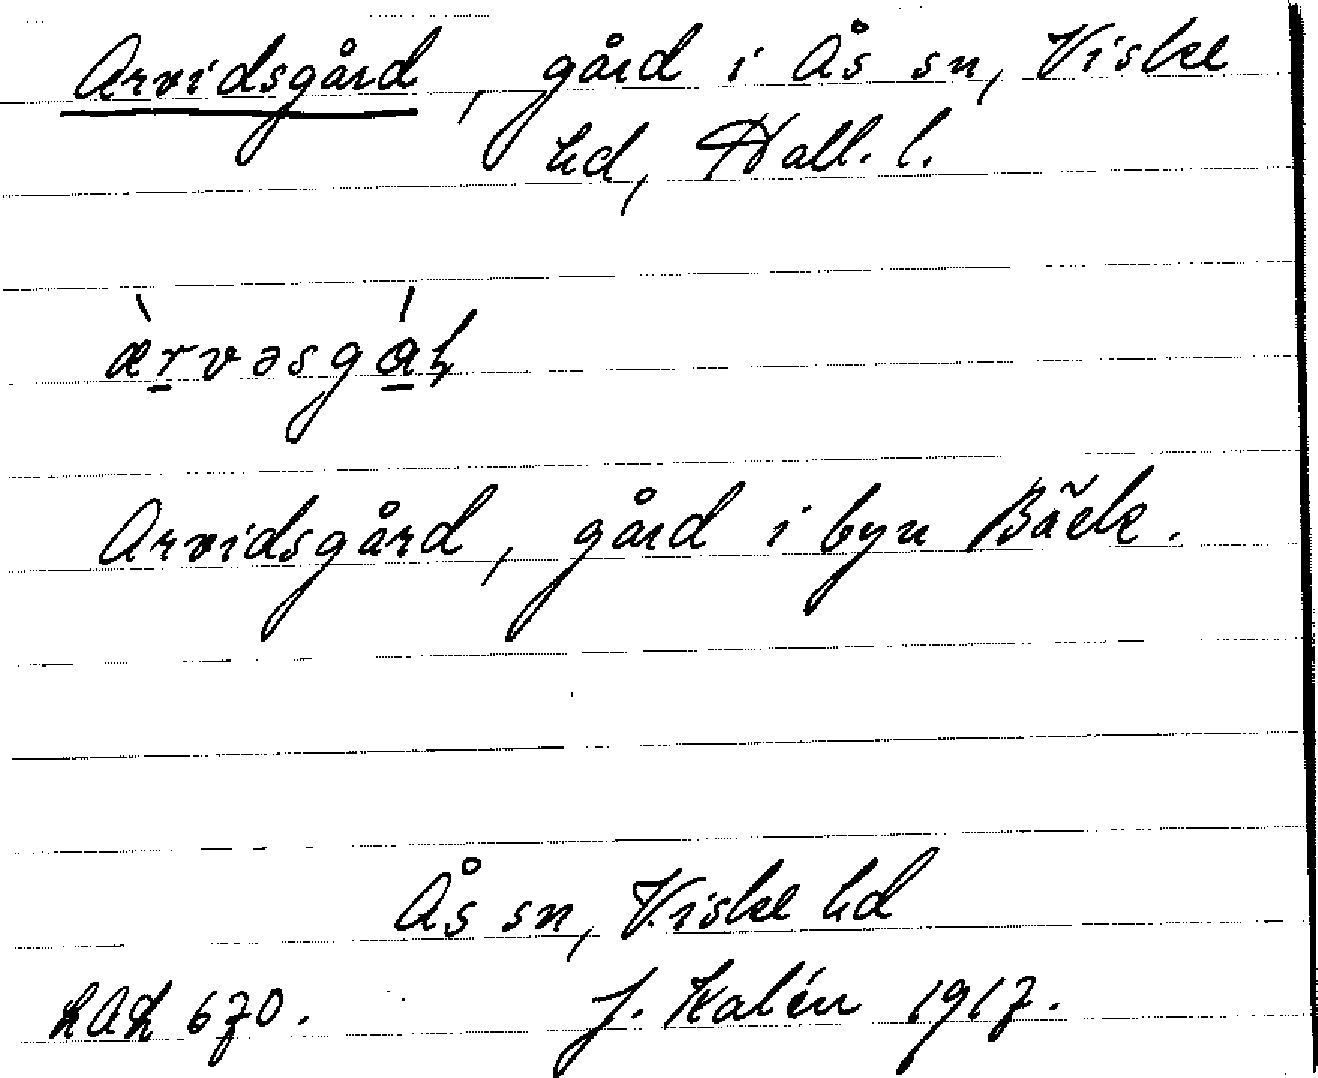 Arvidsgård, gård i Ås sn, Viske
hd, Hall. l.
Arvidsgård, gård i byn Bäck.
Ås sn, Viske hd
670. J. Kalén 1917.